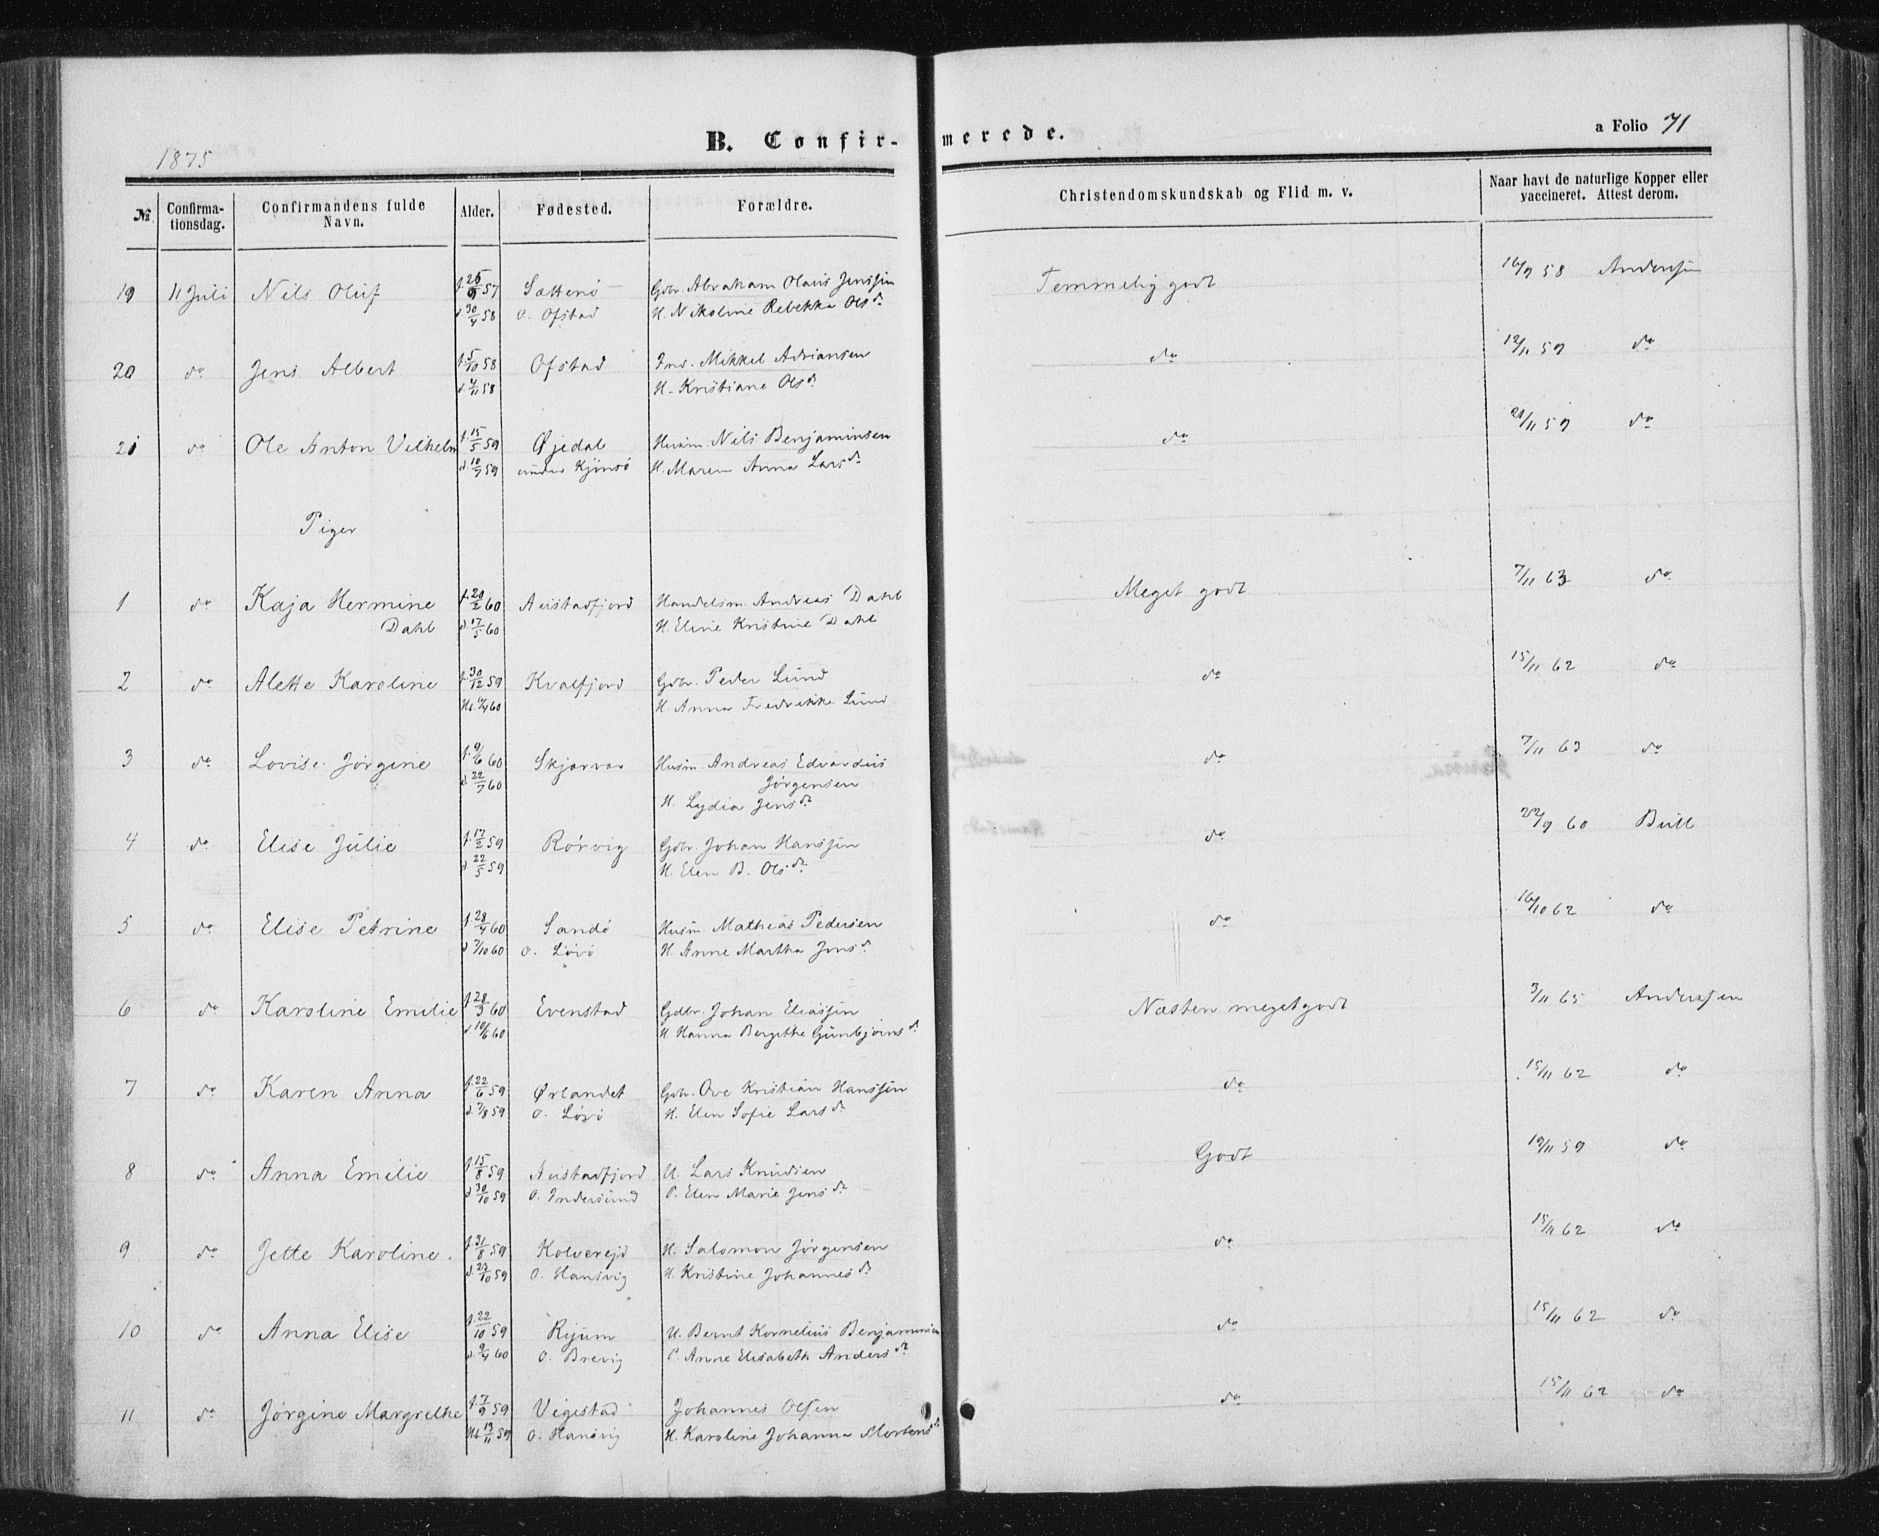 1875
B. Confir-
merede.
a Folio 71
№
Confirma-
tionsdag.
Confirmandens fulde
Navn.
Alder.
Fødested.
Forældre.
Christendomskundskab og Flid m. v.
Naar havt de naturlige Kopper eller
vaccineret. Attest derom.
19 11 Juli Nils Oluf f. 25/9 57 Sætterö Gdbr. Abraham Olaus Jenssen Temmelig godt 16/9 58 Anderssen
d. 30/4 58 O. Ofstad H. Nikoline Rebekka Olsdr
20 do Jens Albert f. 5/10 58 Ofstad Ind. Mikkel Adriansen do 12/11 59 do
d. 4/11 58 H. Kristiane Olsdr
21 do Ole Anton Vilhelm f. 15/5 59 Øjedal Husm. Nils Benjaminsen do 21/11 59 do
d. 10/7 59 under Kjönsö H. Maren Anna Larsdr
Piger
1 do Kaja Hermine f. 20/2 60 Austadfjord Handelsm. Andreas Dahl Meget godt 7/11 63 do
Dahl d. 17/5 60 H. Eline Kristine Dahl
2 do Alette Karoline f. 30/12 59 Kvalfjord Gdbr. Peder Lund do 15/11 62 do
60 H. Anna Fredrikke Lund
3 do Lovise Jørgine f. 9/6 60 Skjærvær Husm. Andreas Edvardus do 7/11 63 do
d. 22/7 60 Jørgensen
H. Lydia Jensdr
4 do Elise Julie f. 17/2 59 Rørvig Gdbr. Johan Hanssen do 22/9 60 Bull
d. 22/5 59 H. Elen B. Olsdr
5 do Elise Petrine f. 28/4 60 Sandö Husm. Mathias Pedersen do 16/10 62 do
d. 7/10 60 O. Lövö H. Anne Martha Jonsdr
6 do Karoline Emilie f. 28/3 60 Evenstad Gdbr. Johan Eliassen Næsten meget godt 3/11 65 Anderssen
d. 10/6 60 H. Hanna Bergitte Gunbjörnsdr
7 do Karen Anna f. 22/6 59 Ørlandet Gdbr. Ove Kristian Hanssen do 15/11 62 do
d. 7/8 59 O. Lövö H. Elen Sofie Larsdr
8 do Anna Emilie f. 15/8 59 Austadfjord U. Lars Knudsen Godt 19/11 59 do
d. 30/10 59 O. Indersund P. Elen Marie Jensdr
9 do Jette Karoline f. 31/8 59 Kolvereid H. Salomon Jörgensen do 15/11 62 do
d. 23/10 59 O. Hansvig H. Kristine Johannesdr
10 do Anna Elise f. 22/10 59 Ryum U. Bernt Kornelius Benjaminsen do 15/11 62 do
d. 9/4 60 O. Brevig P. Anne Elisabeth Andersdr
11 do Jörgine Margrethe f. 7/9 59 Vigestad Johannes Olsen do 15/11 62 do
Hd. 13/11 59 O. Hansvig H. Karoline Johanna Mortensdr